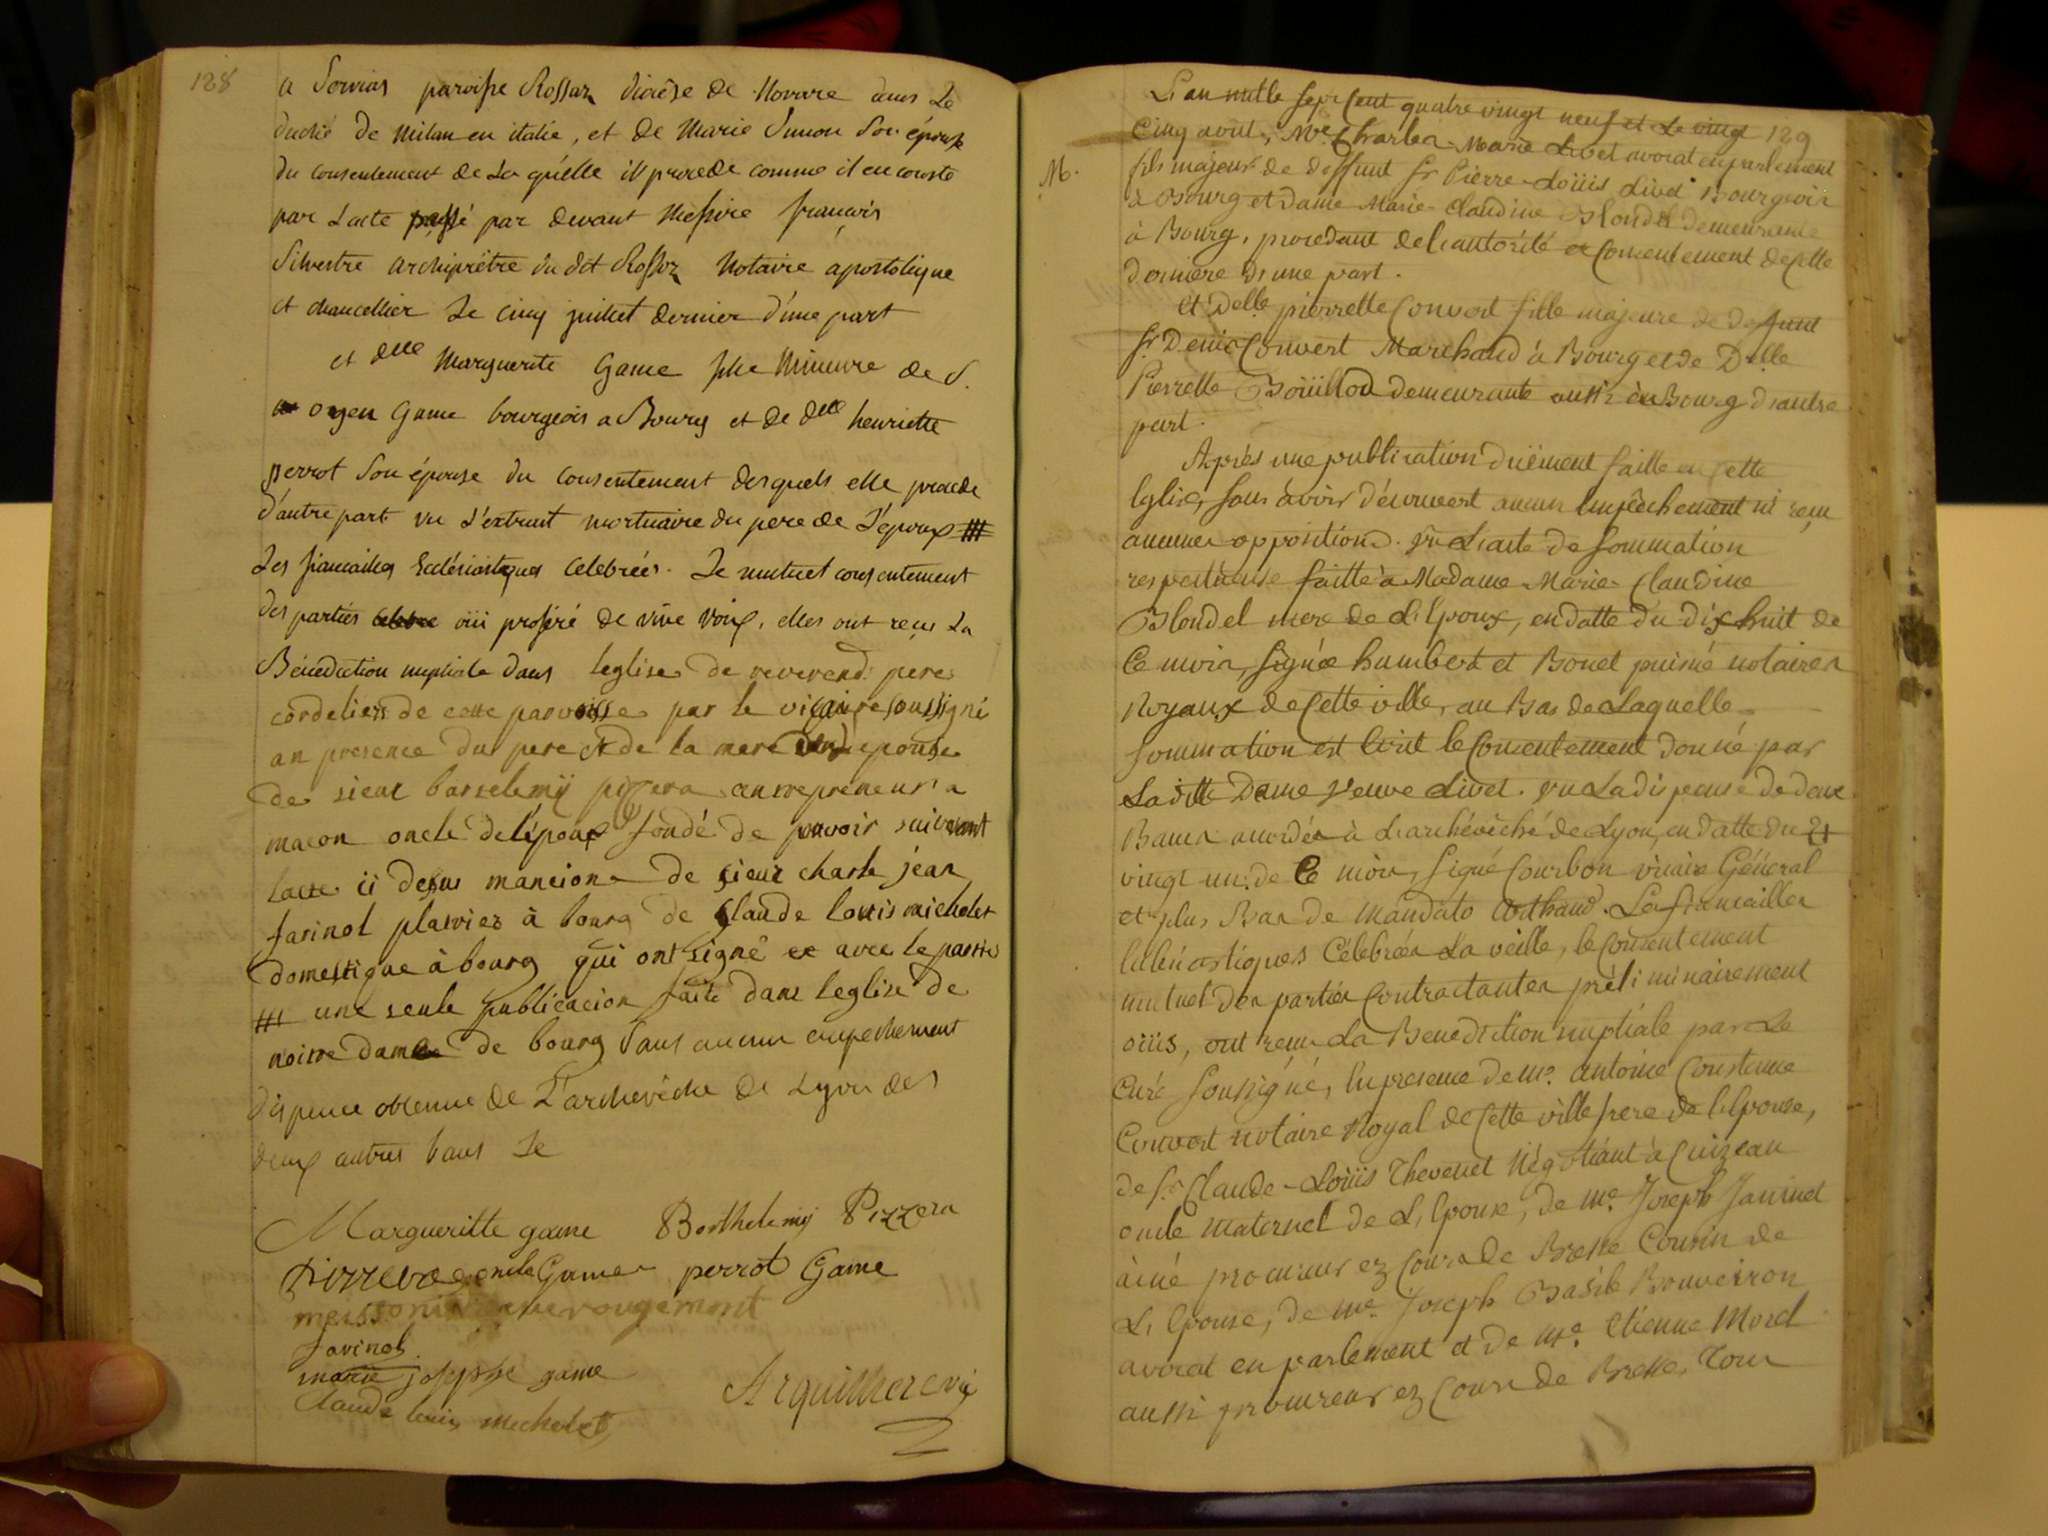 128
a Sorvias paroisse Rossaz diocèse de Novare dans Le
duché de Milan en italie, et de Marie Simon Son épouse
du consentement de La quélle il procede comme il en conste
par L'acte passé par devant Messire françois
Silvestre archiprêtre du dit Rossaz Notaire apostolique
et chancellier Le cinq juillet dernier d'une part
et dlle Marguerite Game fille Mineure de S.
oyen Game bourgeois a Bourg et de dlle henriette
perrot Son épouse du consentement desquels elle procede
d'autre part. vu L'extrait mortuaire du pere de L'époux #
Les fiancailles Ecclésiastiques Celebrées. Le mutuel consentement
des parties oüi proferé de vive voix, elles ont reçu La
Bénédiction nuptiale dans leglise de reverend pere
cordeliers de cette parroisse par le vicaire soussigné
an presence du pere et de la mere epouse
de sieur barselemÿ pizzera anrrepreneur a
macon oncle de l'époux fondé de pouvoir suivant
lacte ci desus mancione de sieur charle jean
farinol platrier à bourg de Claude louis michelet
domestique à bourg qui ont signé avec le parties
# une seule publicacion faite dans leglise de
notre dame de bourg Sans aucun empechement
dispence obtenue de L'archevêché de Lyon des
deux autres bans Le
Margueritte game Barthelemÿ Pizzera
Pizzera oncle Game perrot Game
meissonier rougemont
farinol
marie josephe game
Claude louis michelet
Arquillere vic
129
L'an mille sept Cent quatre vingt neuf et Le vingt
Cinq avril, Me. Charles-Marie Livet avocat en parlement
M.
fils majeur de deffunt Sr Pierre-Loüis Livet Bourgeois
à Bourg et dame Marie-Claudine Blondel demeurante
à Bourg, procedant de l'autorité et Consentement de Cette
derniere d'une part.
et Delle pierrette Convert fille majeure de defunt
Sr Denis Convert Marchand à Bourg et de Dlle
Pierrette Boüillod demeurante aussi à Bourg d'autre
part.
Après une publication düement faitte en Cette
Eglise, Sans avoir découvert aucun Empêchement ni reçu
aucunes oppositions. vu L'acte de Sommation
respectueuse faitte à Madame Marie-Claudine
Blondel mere de L'Epoux, en datte du dix huit de
Ce mois, Signée humbert et Bonet puiné notaires
Royaux de Cette ville, au Bas de Laquelle
Sommation est Ecrit le Consentement donné par
Laditte Dame Veuve Livet. vu La dispense de deux
Bans accordée à L'archévêché de Lyon, en datte du
vingt un de Ce mois, Signé Courbon vicaire Général
et plus Bas de Mandato Arthaud. Les fiancailles
Ecclésiastiques Célébrées La veille, le Consentement
mutuel des parties Contractantes préliminairement
oüis, ont reçu La Benediction nuptiale par Le
Curé Soussigné, En presence de Me. antoine Constance
Convert notaire Royal de Cette ville frere de l'Epouse,
de Sr Claude-Loüis Thevenet Négotiant à Cuizeau
oncle Maternel de L'Epouse, de Me. Joseph Janinet
ainé procureur ez Cours de Bresse Cousin de
L'Epouse, de Me. Joseph Basile Bouveiron
avocat en parlement et de Me. Etienne Morel
aussi procureur ez Cours de Bresse, Tous